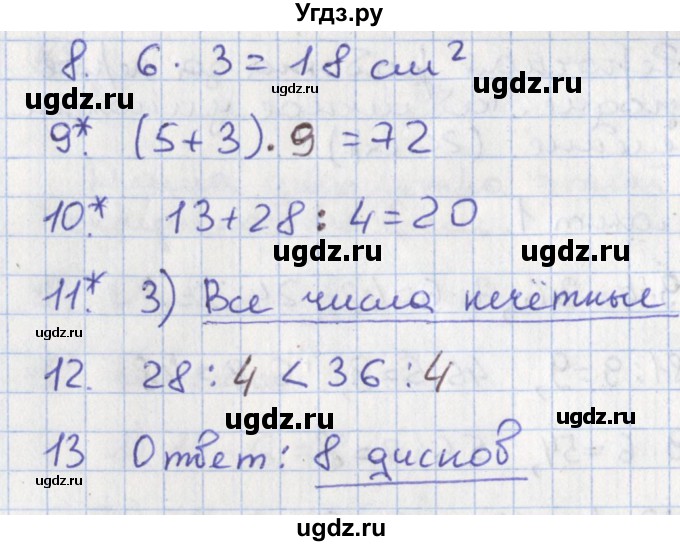 Угдз.ру
8. 6 · 3 = 18 см²
ugdz.ru ugdz.ru ugdz.ru
9*. (5+3) · 9 = 72
10*. 13+28 : 4 = 20
ugdz.ru ugdz.ru
11*. 3) Все числа нечётные
ugdz.ru
12. 28 : 4 < 36 : 4
ugdz.ru ugdz.ru
13 Ответ: 8 дисков
ugdz.ru ugdz.ru
ugdz.ru